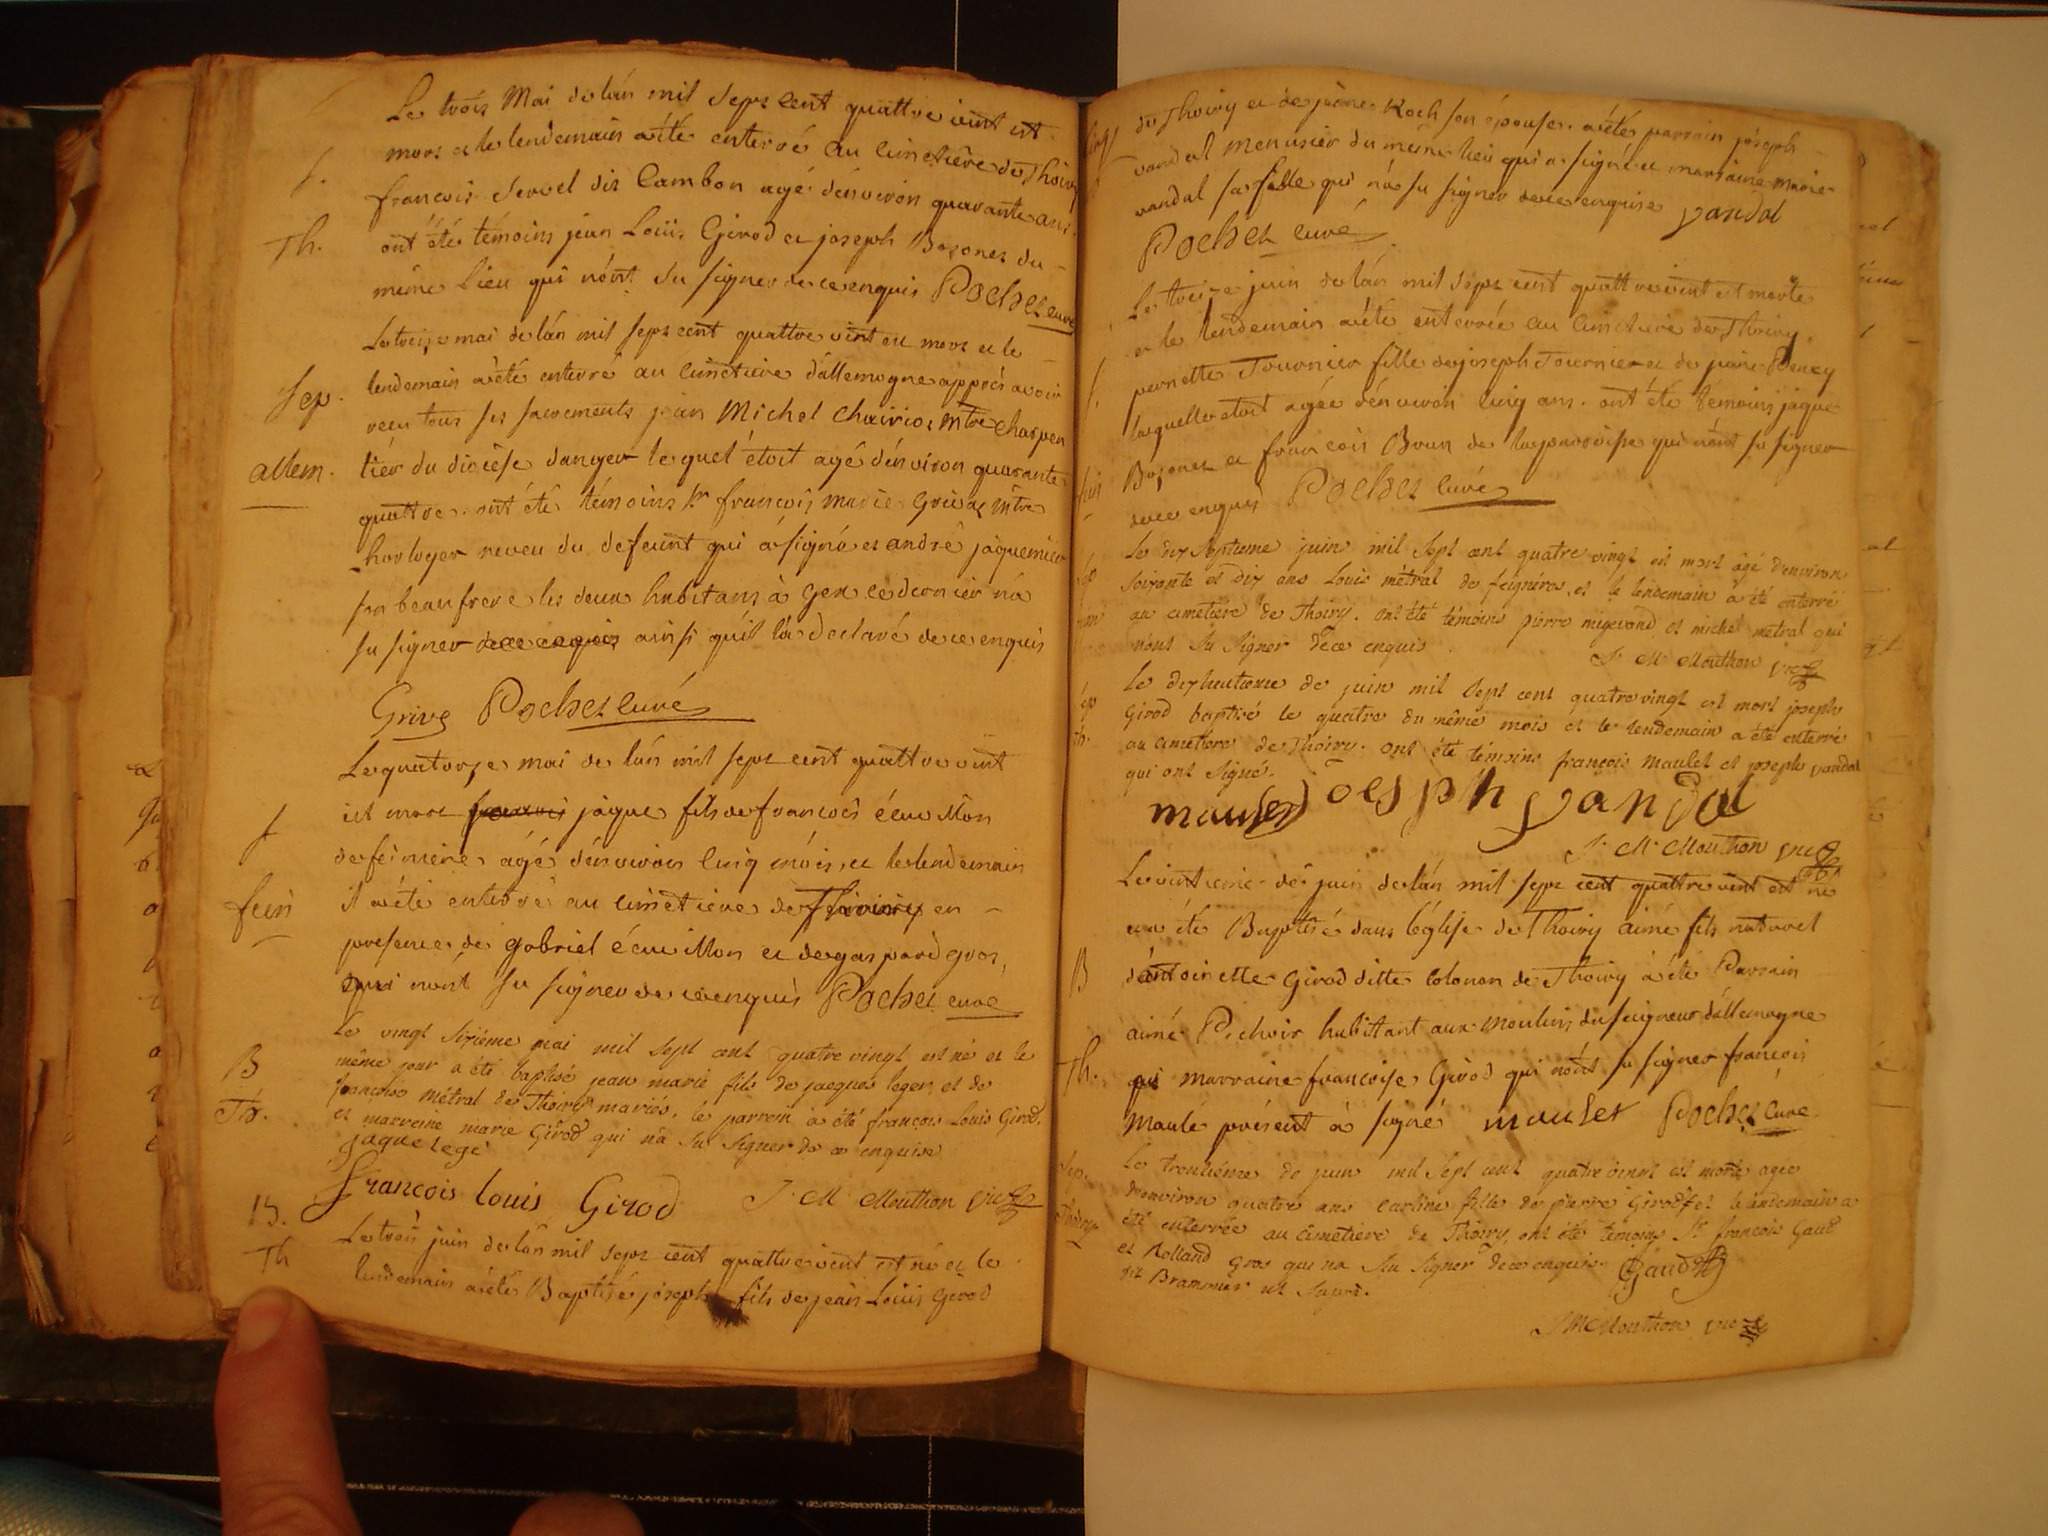 Le trois Mai de lán mil sept cent quattre vint est
mort et le lendemain aété enterré au cimetiêre de Thoiry
S.
françois Servel dit Cambon agé dénviron quarante ans.
Th.
ont été témoins jean Loüis Girod et joseph Bozonet du
même Lieu qui nónt su signer de ce enquis Pochet curé
Le treize mai de lán mil sept cent quattre vint est mort et le
Sep.
lendemain aété enterré au cimetiere dállemogne apprés avoir
recu tous ses sacrements jean Michel Chairiot mtre charpen
allem.
tier du diocèse danger lequel étoit agé dénviron quarante
quattre. ont été témoins Sr françois marie Grivaz mtre
horloger neveu du defeunt qui a signé et andré jaquemier
son beaufrere les deux habitans à Gex ce dernier ná
su signer de ce enquis ainsi quíl lá declaré de ce enquis
Grivaz Pochet curé
Le quatorze mai de lán mil sept cent quattre vint
S
est mort francois jâque fils de françois écuvillon
de feiniere agé dénviron cinq mois, et le lendemain
fein
il aété enterré au cimetiere de Thoiry en
presence de gabriel écuvillon et de gaspard gros,
qui nont su signer de ce enquis Pochet curé
Le vingt sixiéme mai mil sept cent quatre vingt est né et le
B
même jour a été baptisé jean marie fils de jacques leger et de
françoise métral de Thoiry mariés. le parrein à été françois Louis Girod,
Th.
et marreine marie Girod qui nà su signer de ce enquise
jaque legé
françois louis Girod J. M. Mouthon vic
B.
Le trois juin de lán mil sept cent quattre vint est né et le
Th
lendemain aété Baptisé joseph fils de jean Loüis Girod
de Thoiry et de jeane Roch son épouse. aété parrain joseph
vandal menusier du même lieu qui a signé et marraine marie
vandal sa fille qui ná su signer de ce enquise vandal
Pochet curé
Le treize juin de lán mil sept cent quattre vint est morte
et le lendemain aété enterrée au cimetiere de Thoiry.
S.
pernette Tournier fille de joseph Tournier et de jeane Peney
laquelle étoit agée dénviron cinq ans. ont été témoins jâque
Bozonet et françois Brun de la parroisse qui nónt su signer
de ce enquis Pochet curé
Le dix septieme juin mil sept cent quatre vingt est mort agé d'environ
soixante et dix ans Louis métral de feignieres, et le lendemain a été enterré
au cimetiere de Thoiry. ont été témoins pierre migerand et michel métral qui
n'ont su signer dece enquis. J. M. Mouthon vic
Le dixhuitieme de juin mil sept cent quatre vingt est mort joseph
Girod baptisé le quatre du même mois et le lendemain a été enterré
Th.
au cimetiere de Thoiry. ont été témoins françois maulet et joseph vandal
qui ont signé.
maulet joesph vandal
J. M. Mouthon vic
Le vintieme de juin de lán mil sept cent quattre vint est né
et a été Baptisé dans léglise de Thoiry aimé fils naturel
B
dántoinette Girod ditte Colonon de Thoiry à été Parrain
aimé Pichoir habittant aux Moulins du seigneur dállemogne
Th.
et marraine françoise Girod qui nónt su signer françois
Maulé présent à signé maulet Pochet curé
Sep.
Le trentiéme de juin mil sept cent quatre vingt est morte agée
d'environ quatre ans carline fille de pierre Girod et le lendemain a
Thoiry
été enterrée au cimetiere de Thoiry, ont été témoins Sr françois Gaud
et Rolland Gros qui na su signer de ce enquis. Gaud
dit Brammer ut supra.
J M Mouthon vic